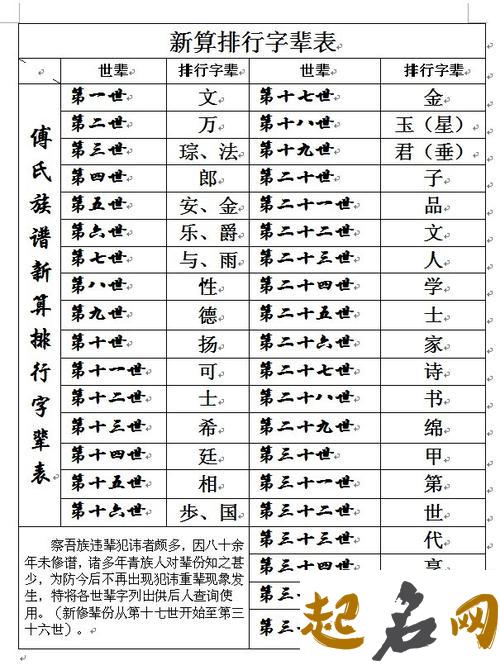 新算排行字辈表
世辈 排行字辈 世辈 排行字辈
傅氏族谱新算排行字辈表
第一世 文 第十七世 金
第二世 万 第十八世 玉（星）
第三世 琮、法 第十九世 君（垂）
第四世 郎 第二十世 子
第五世 安、金 第二十一世 品
第六世 乐、爵 第二十二世 文
第七世 与、雨 第二十三世 人
第八世 性 第二十四世 学
第九世 德 第二十五世 士
第十世 扬 第二十六世 家
第十一世 可 第二十七世 诗
第十二世 士 第二十八世 书
第十三世 希 第二十九世 绵
第十四世 廷 第三十世 甲
第十五世 相 第三十一世 第
第十六世 步、国 第三十二世 世
第三十三世 代
第三十四世
第三
第三
察吾族违辈犯讳者颇多，因八十余
年未修谱，诸多年青族人对辈份知之甚
少，为防今后不再出现犯讳重辈现象发
生，特将各世辈字列出供后人查询使
用。（新修辈份从第十七世开始至第三
十六世）。
起名网